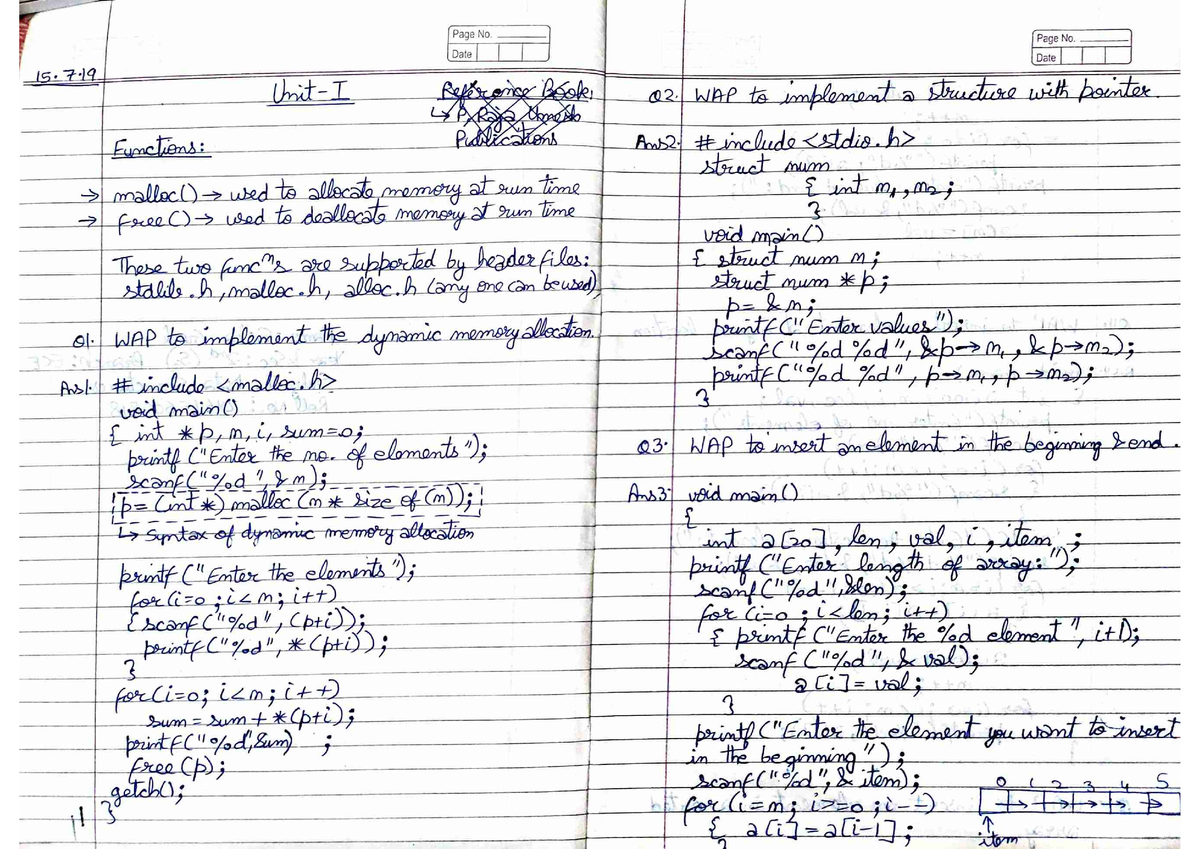 Page No.
Date
15.7.19
Unit-I
Reference Book:
↳ P. Raja
Publications
Functions:
→ malloc() → used to allocate memory at run time
→ free() → used to deallocate memory at run time
These two funcⁿs are supported by header files:
stdlib.h, malloc.h, alloc.h (any one can be used)
Q1. WAP to implement the dynamic memory allocation.
Ans1. # include <malloc.h>
void main()
{ int *p, n, i, sum=0;
printf ("Enter the no. of elements");
scanf ("%d", &n);
p= (int *) malloc (n * size of (n));
↳ Syntax of dynamic memory allocation
printf ("Enter the elements");
for(i=0; i<n; i++)
{ scanf ("%d", (p+i));
printf ("%d", *(p+i));
}
for(i=0; i<n; i++)
sum = sum + *(p+i);
printf("%d", sum) ;
free (p);
getch();
}
Page No.
Date
Q2. WAP to implement a structure with pointer.
Ans2. # include <stdio.h>
struct num
{ int m₁, m₂;
}
void main()
{ struct num n;
struct num *p;
p= &n;
printf ("Enter values");
scanf ("%d %d", &p→m₁, &p→m₂);
printf ("%d %d", p→m₁, p→m₂);
}
Q3. WAP to insert an element in the beginning & end.
Ans3. void main()
{
int a[20], len, val, i, item ;
printf ("Enter length of array:");
scanf ("%d", &len);
for (i=0; i<len; i++)
{ printf ("Enter the %d element", i+1);
scanf ("%d", & val);
a[i]= val;
}
printf ("Enter the element you want to insert
in the beginning");
scanf ("%d", & item);
for (i=n; i>=0; i--)
{ a[i] = a[i-1];
0 1 2 3 4 5
item